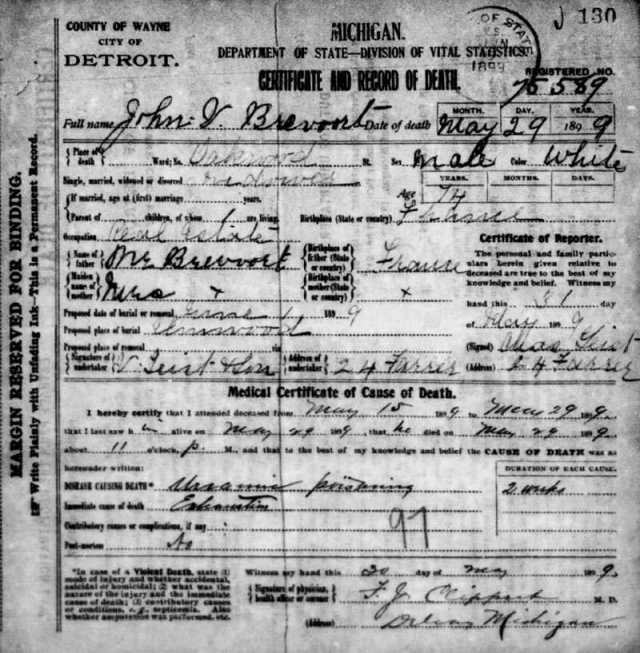 COUNTY OF WAYNE
CITY OF
DETROIT.
MICHIGAN.
DEPARTMENT OF STATE—DIVISION OF VITAL STATISTICS.
CERTIFICATE AND RECORD OF DEATH.
OF STAT
1899
J 130
REGISTERED NO.
75589
Full name John V. Brevoort Date of death
MONTH. DAY. YEAR.
May 29 1899
Place of death Ward; No. Oakwood St. Sex Male Color White
Single, married, widowed or divorced Widowed
YEARS. MONTHS. DAYS.
If married, age at (first) marriage years. Age 74
Parent of children, of whom 1 are living. Birthplace (State or country)
Occupation Real Estate
Certificate of Reporter.
Name of father Mr Brevoort Birthplace of father (State or country) France
The personal and family particulars herein given relative to deceased are true to the best of my knowledge and belief. Witness my
Maiden name of mother Mrs x Birthplace of mother (State or country) x
hand this 31 day
Proposed date of burial or removal June 1 1899
of May 1899
Proposed place of burial Elmwood
Proposed place of removal via
(Signed) Chas Geist
Signature of undertaker V. Geist & Son Address of undertaker 24 Farrer
(Address) 24 Farrer
Medical Certificate of Cause of Death.
I hereby certify that I attended deceased from May 15 1899 to May 29 1899,
that I last saw him alive on May 29 1899, that he died on May 29 1899,
about 11 o'clock, P. M., and that to the best of my knowledge and belief the CAUSE OF DEATH was as
hereunder written:
DURATION OF EACH CAUSE.
DISEASE CAUSING DEATH* Uraemic poisoning 2 weeks
Immediate cause of death Exhaustion
Contributory causes or complications, if any
97
Post-mortem No
*In case of a Violent Death, state (1) mode of injury and whether accidental, suicidal or homicidal; (2) what was the nature of the injury and the immediate cause of death; (3) contributory causes or conditions, e. g. septicemia. Also whether amputation was performed, etc.
Witness my hand this 30 day of May 1899.
Signature of physician, health officer or coroner F. J. Clippert M. D.
(Address) Delray Michigan
MARGIN RESERVED FOR BINDING.
Write Plainly with Unfading Ink—This is a Permanent Record.